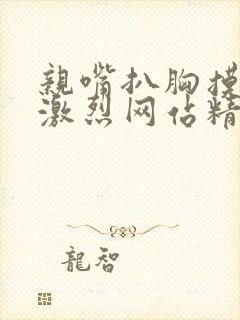 親嘴扒胸摸
激烈网佔精
龍智